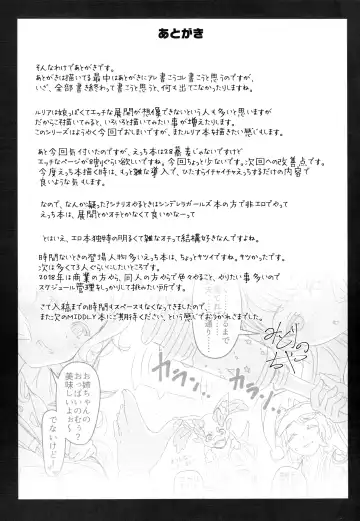 あとがき
そんなわけであとがきです。
あとがきは描いてる最中はあとがきにアレ書こうコレ書こうと思うのですが、
いざ、全部書き終わって書こうと思うと、何も出てこなかったりしますね。
ルリアは娘っぽくてエッチな展開が想像できないという人も多いと思いますが
だからこそ描いてみると、いろいろ描いてみたい事が増えたりします。
このシリーズはようやく今回でおしまいですが、またルリア本を描きたい感じもします。
あと今回気付いたのですが、えっち本は28慕著じゃないですけど
エッチなページが8割ぐらい欲しいですね。今回ちょっと少ないです。次回への改善点です。
今度えっち本描く時は、もっと雑な導入で、ひたすらイチャイチャえっちするだけの内容で
良いような気もします。
なので、なんか凝ったシナリオやるときはシンデレラガールズ本の方で非エロでやって
えっち本は、展開とかオチとかなくて良いかなーって
とはいえ、エロ本独特の明るくて雑なオチって結構好きなんですよね。
時間ないときの登場人物多いえっち本は、ちょっとヤツイですね。サツかったです。
次は多くて3人ぐらいにしたいところです。
2018年は商業の方やら、同人の方やらで色々やること、やりたい事多いので
スケジュール管理をしっかりして挑みたい所です。
さて入稿までの時間もスペースもなくなってきましたので、
また次のMIDDLY本にご期待ください、という感じでおうかれさまでした。
お姉ちゃんの
おっぱいのむぅ？
美味しいよぉ～
でないけど！